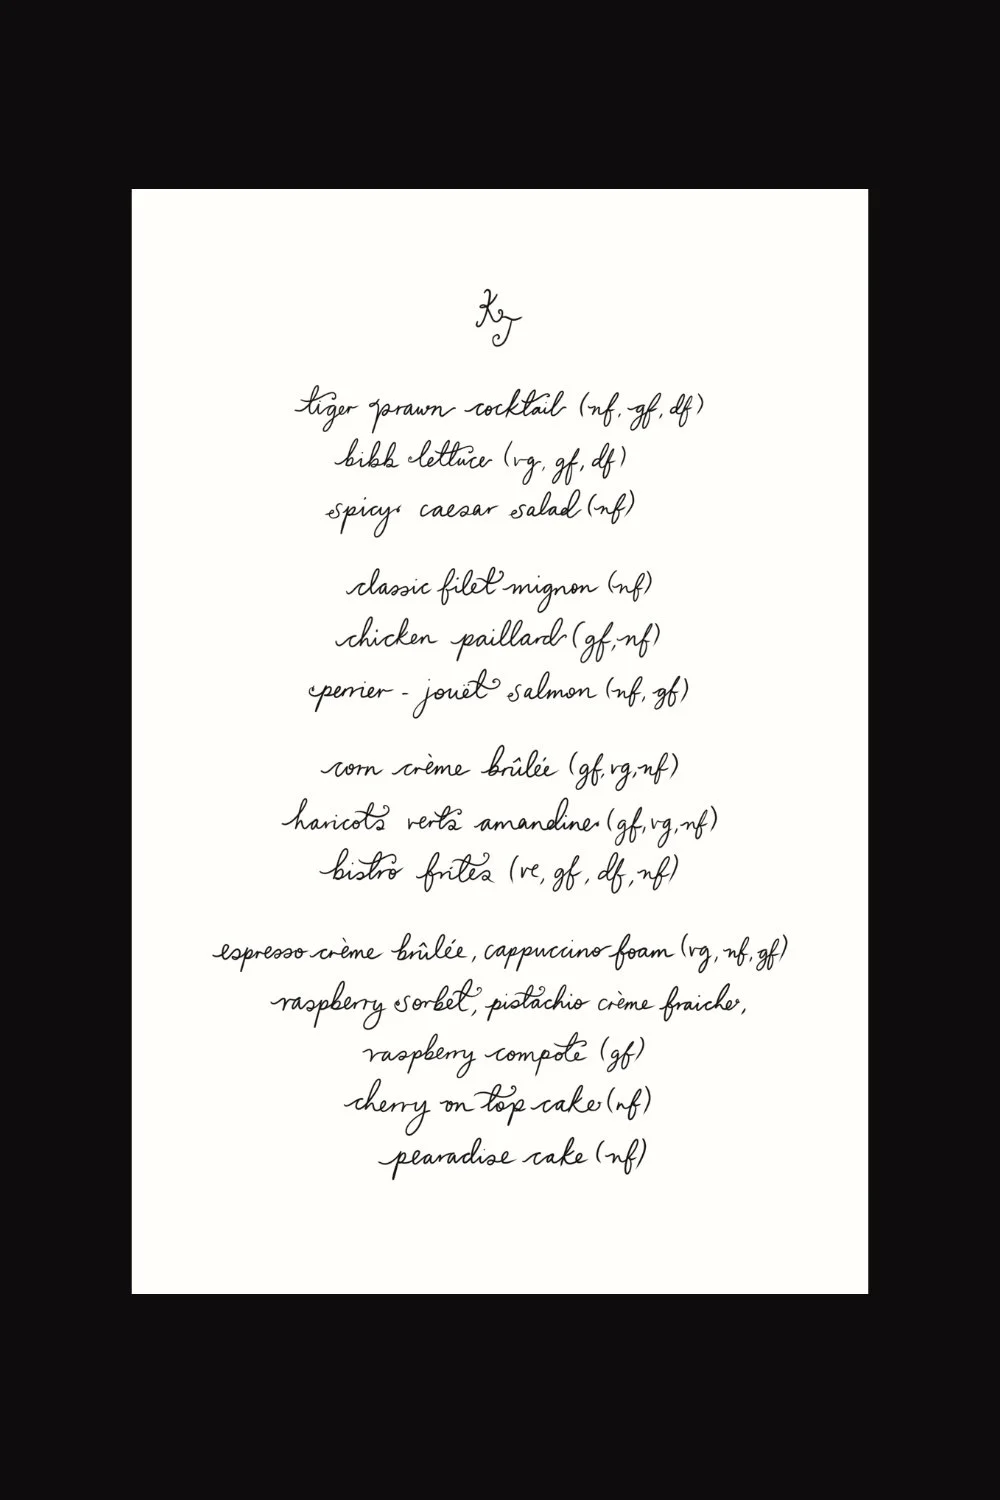 KJ
tiger prawn cocktail (nf, gf, df)
bibb lettuce (vg, gf, df)
spicy caesar salad (nf)
classic filet mignon (nf)
chicken paillard (gf, nf)
perrier - jouët salmon (nf, gf)
corn crème brûlée (gf, vg, nf)
haricots verts amandine (gf, vg, nf)
bistro frites (ve, gf, df, nf)
espresso crème brûlée, cappuccino foam (vg, nf, gf)
raspberry sorbet, pistachio crème fraiche,
raspberry compote (gf)
cherry on top cake (nf)
pearadise cake (nf)